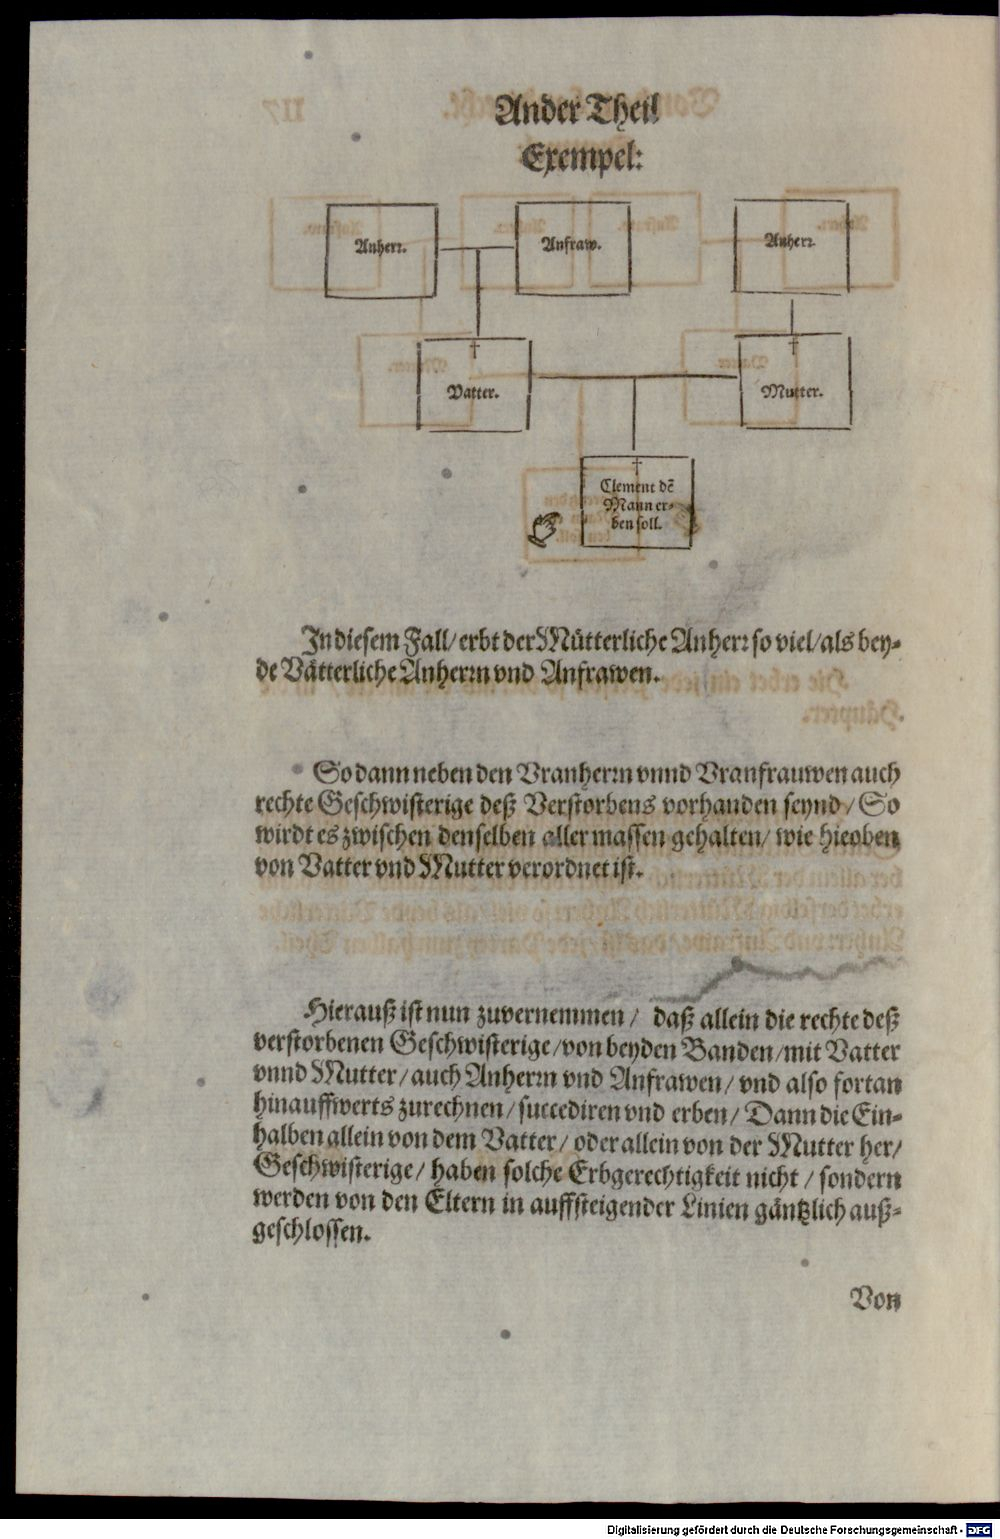 Ander Theil
Exempel:
Anherr.
Anfraw.
Anherr.
†
Vatter.
†
Mutter.
†
Clement dē
Mann er-
ben soll.
In diesem Fall/ erbt der Mütterliche Anherr so viel/ als bey-
de Vätterliche Anherrn vnd Anfrawen.
So dann neben den Vranherrn vnnd Vranfrauwen auch
rechte Geschwisterige deß Verstorbens vorhanden seynd/ So
wirdt es zwischen denselben aller massen gehalten/ wie hieoben
von Vatter vnd Mutter verordnet ist.
Hierauß ist nun zuvernemmen/ daß allein die rechte deß
verstorbenen Geschwisterige/ von beyden Banden/ mit Vatter
vnnd Mutter/ auch Anherrn vnd Anfrawen/ vnd also fortan
hinauffwerts zurechnen/ succediren vnd erben/ Dann die Ein-
halben allein von dem Vatter/ oder allein von der Mutter her/
Geschwisterige/ haben solche Erbgerechtigkeit nicht/ sondern
werden von den Eltern in auffsteigender Linien gäntzlich auß-
geschlossen.
Von
Digitalisierung gefördert durch die Deutsche Forschungsgemeinschaft - DFG